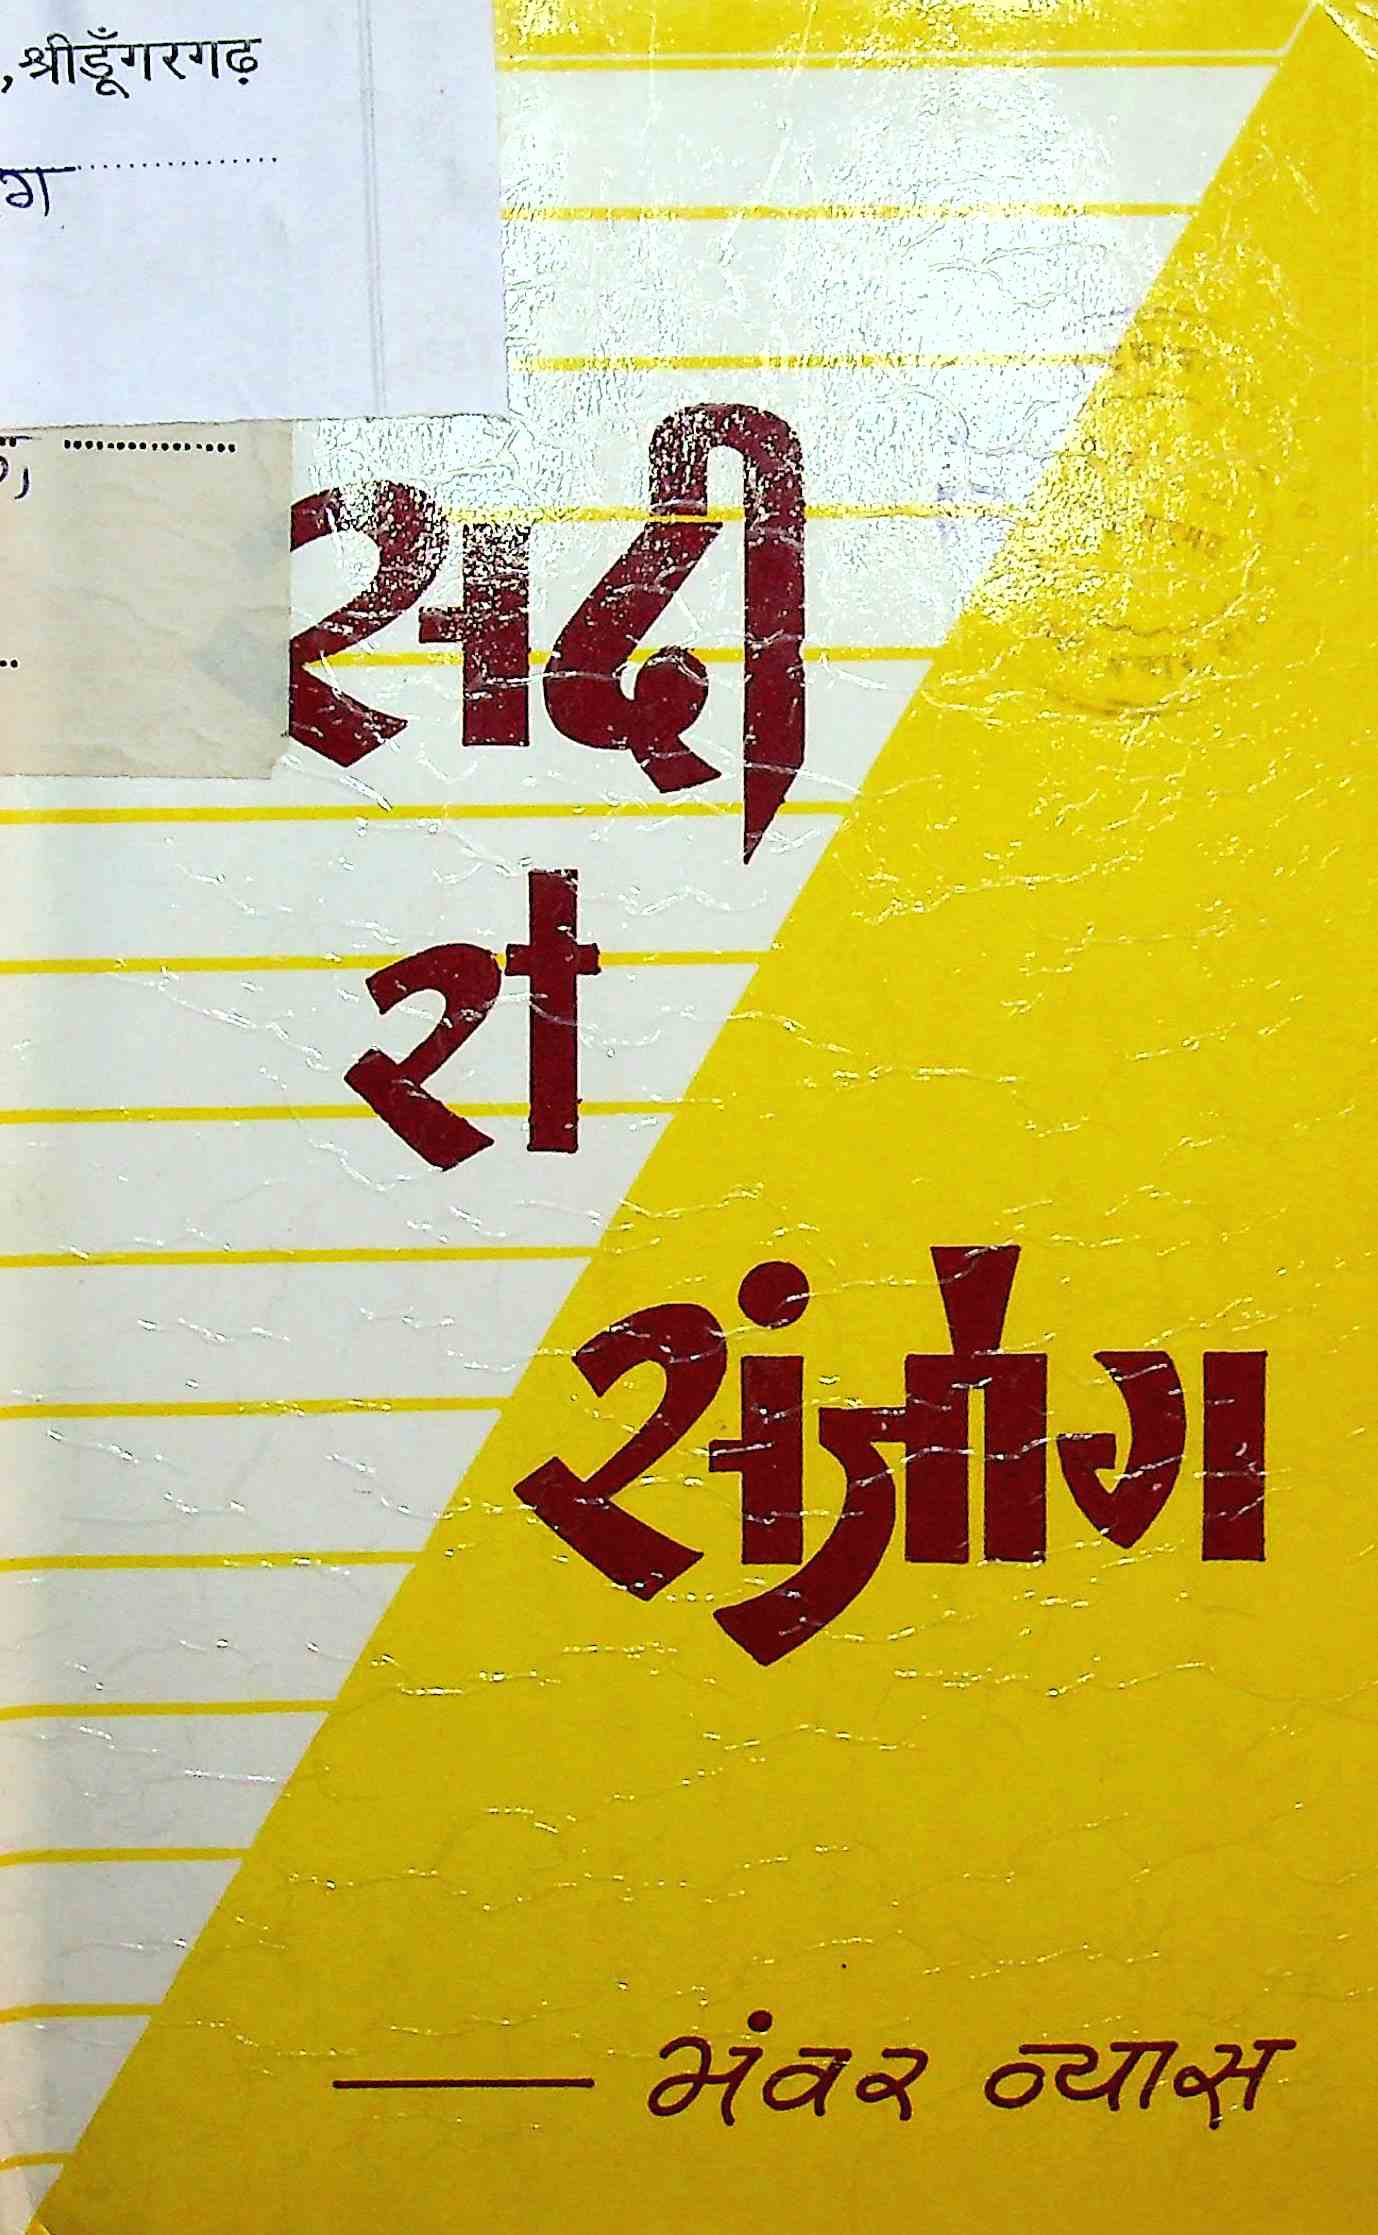 ,श्रीडूँगरगढ़
ग
सदी
रा
संजोग
— भंवर व्यास